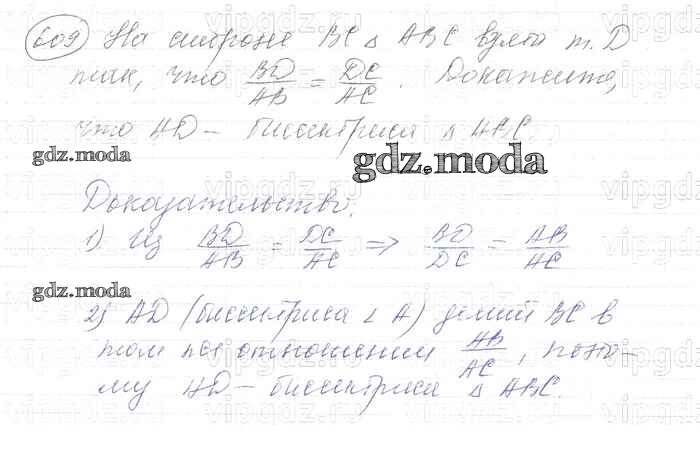 609 На стороне BC Δ ABC взята т. D
так, что BD/AB = DC/AC. Докажите,
что AD – биссектриса Δ ABC.
gdz.moda
gdz.moda
Доказательство.
1) Из BD/AB = DC/AC => BD/DC = AB/AC
gdz.moda
2) AD (биссектриса ∠ A) делит BC в
том же отношении AB/AC, поэто-
му AD – биссектриса Δ ABC.